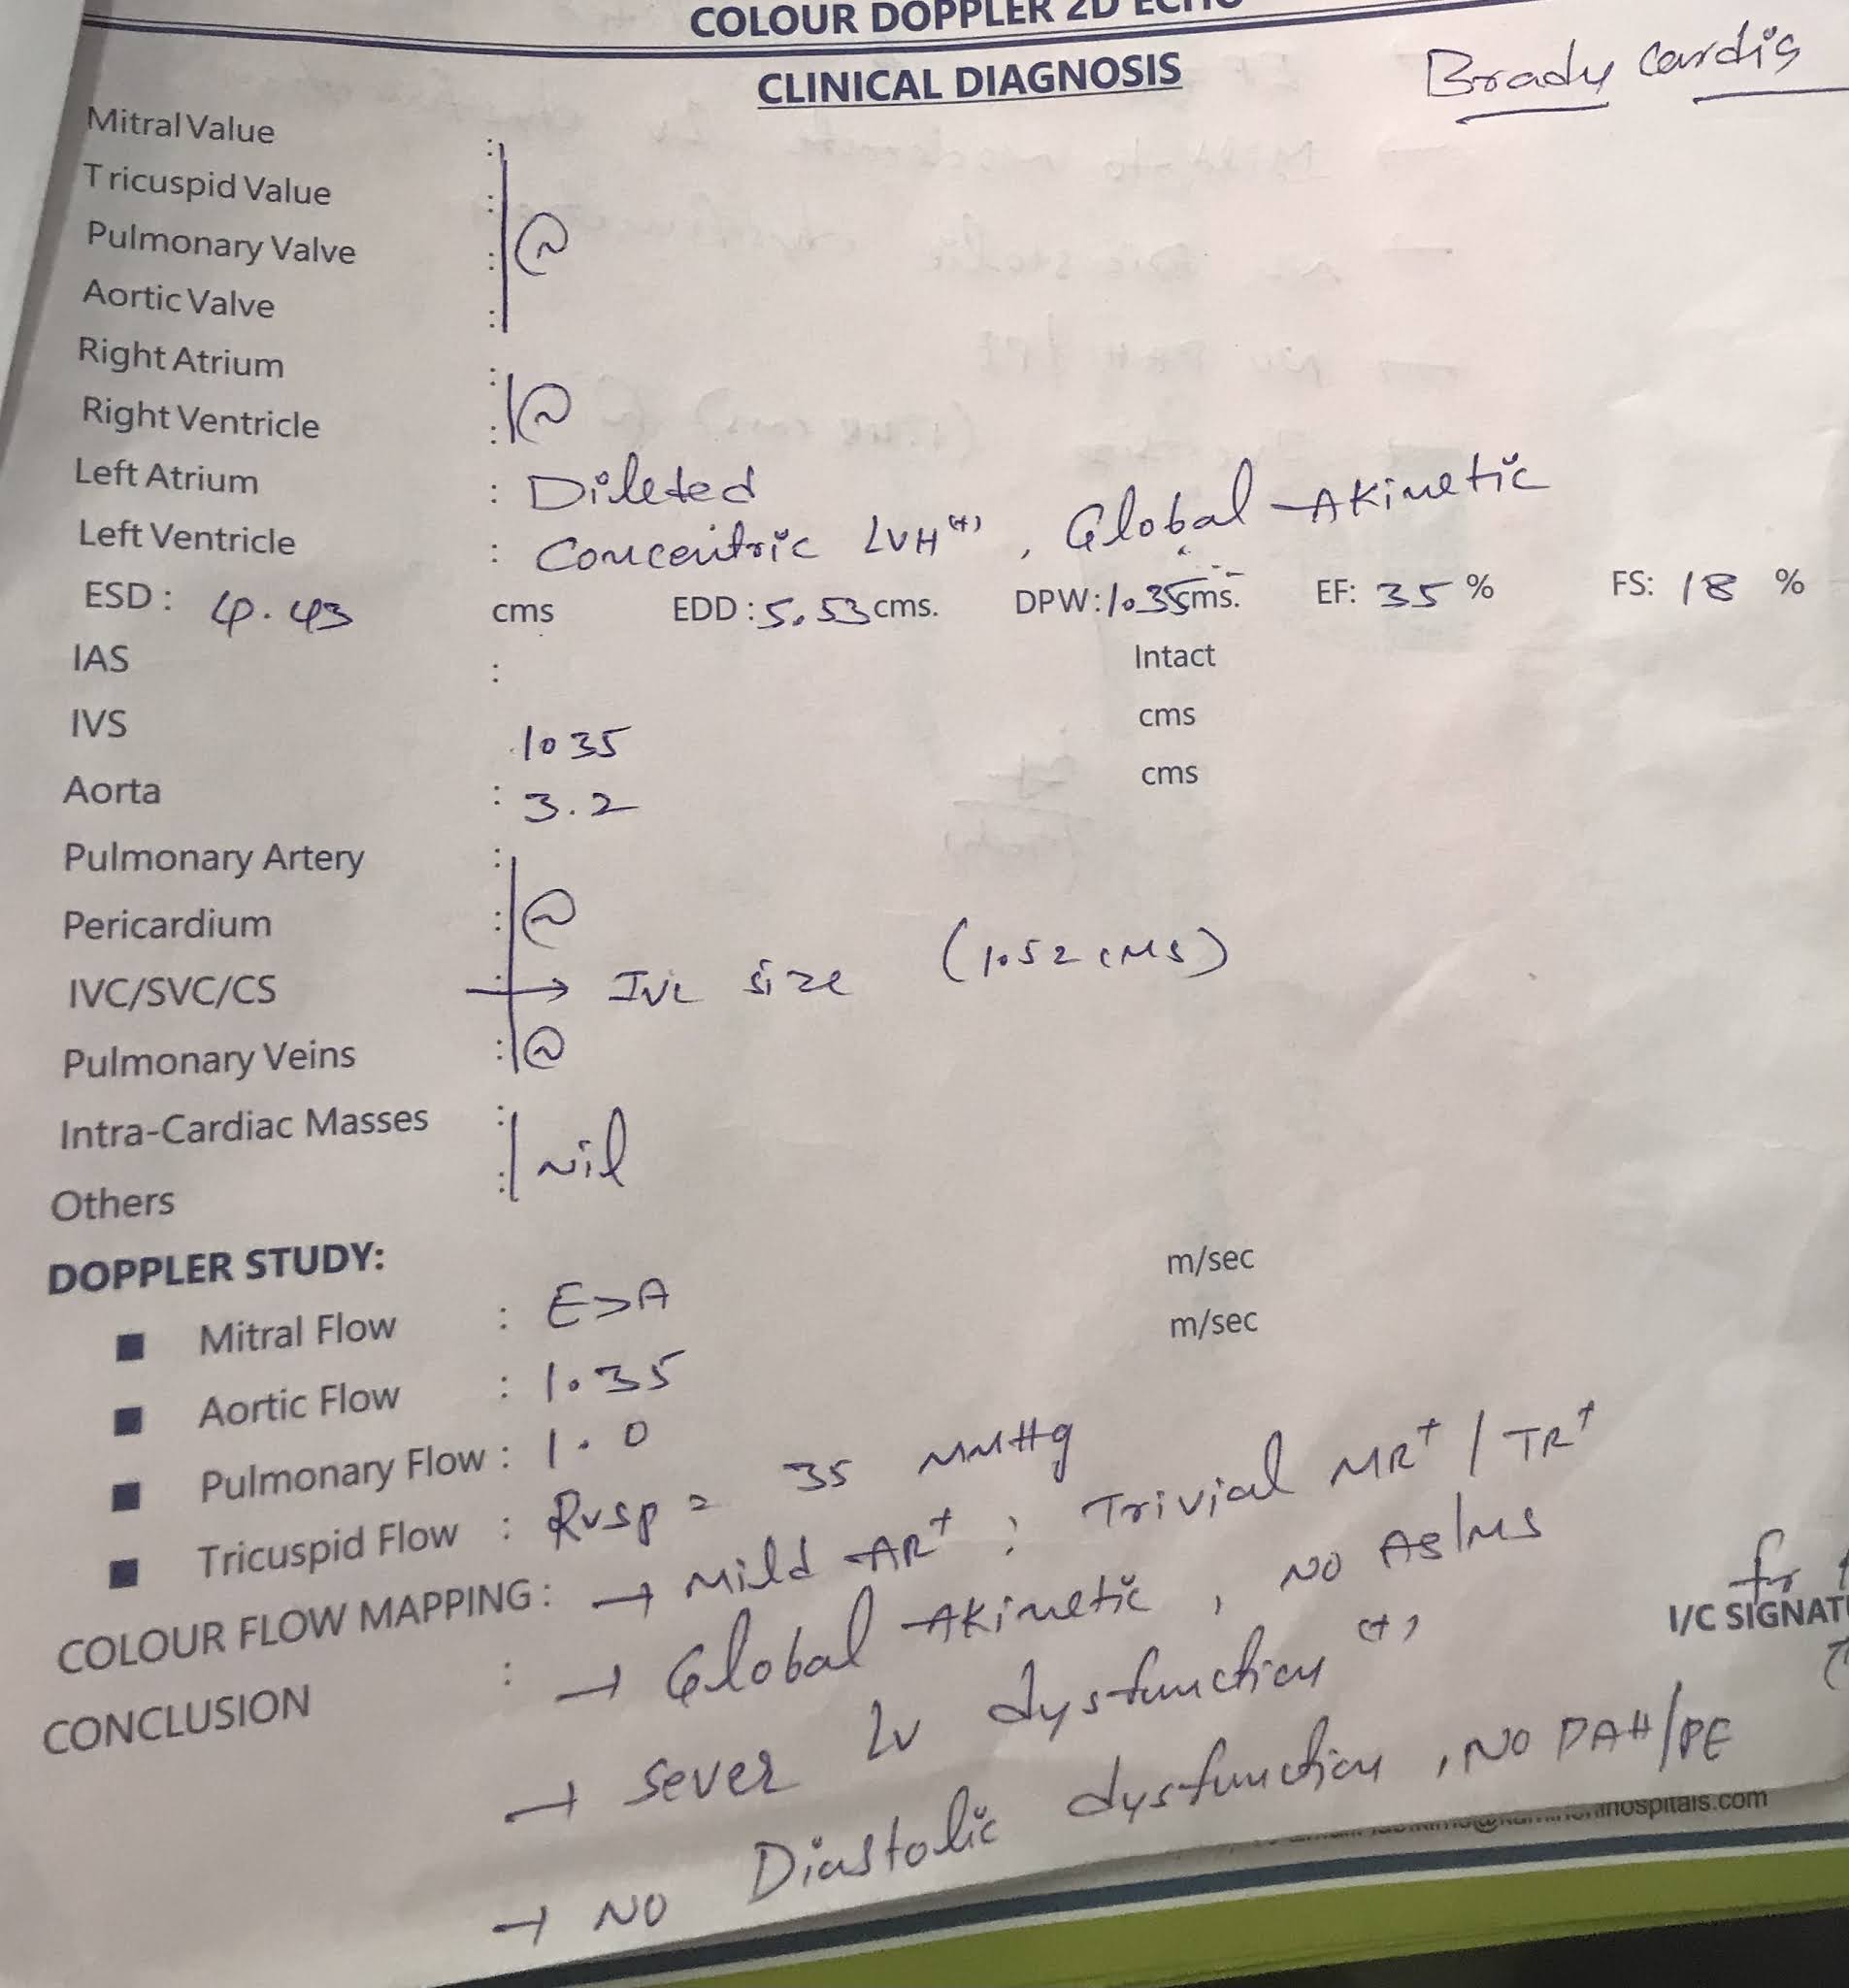 COLOUR DOPPLER 2D ECHO
CLINICAL DIAGNOSIS
Brady cardia
Mitral Value :
Tricuspid Value :
Pulmonary Valve :
Aortic Valve :
Right Atrium :
Right Ventricle :
Left Atrium : Dileted
Left Ventricle : Concentric LVH (+), Global Akinetic
ESD : 4.43 cms EDD : 5.53 cms. DPW: 1.35cms. EF: 35 % FS: 18 %
IAS : Intact
IVS 1035 cms
Aorta : 3.2 cms
Pulmonary Artery :
Pericardium :
IVC/SVC/CS : → IVC size (1.52 cms)
Pulmonary Veins :
Intra-Cardiac Masses : nil
Others :
DOPPLER STUDY:
■ Mitral Flow : E>A m/sec
■ Aortic Flow : 1.35 m/sec
■ Pulmonary Flow : 1.0
■ Tricuspid Flow : RVSP = 35 MMHg
COLOUR FLOW MAPPING : → Mild AR+ ; Trivial MR+ / TR+
CONCLUSION : → Global Akinetic, NO AS/MS
→ Sever LV dysfunction (+)
→ NO Diastolic dysfunction, NO PAH/PE
I/C SIGNAT
hospitals.com